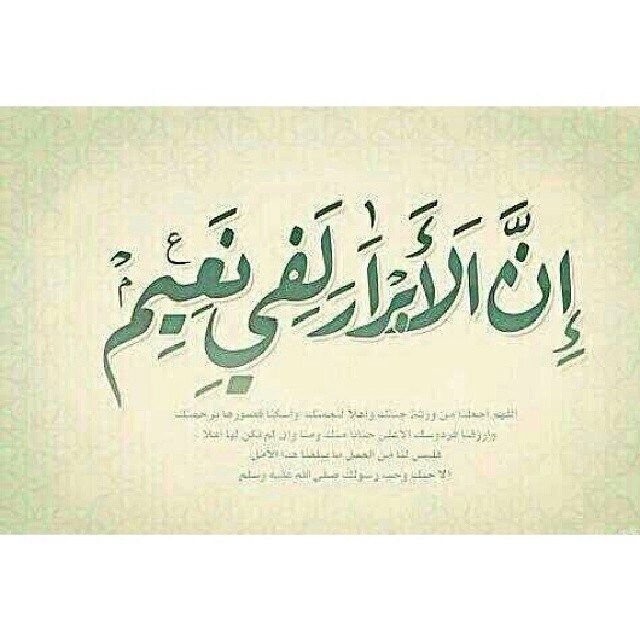 إِنَّ الْأَبْرَارَ لَفِي نَعِيمٍ
اللهم اجعلنا من ورثة جنتك وأهلا لنعمتك وأسكنا قصورها برحمتك
وارزقنا فردوسك الأعلى حنانا منك ومنا وإن لم نكن لها أهلا
فليس لنا من العمل ما يبلغنا هذا الأمل
إلا حبك وحب رسولك صلى الله عليه وسلم